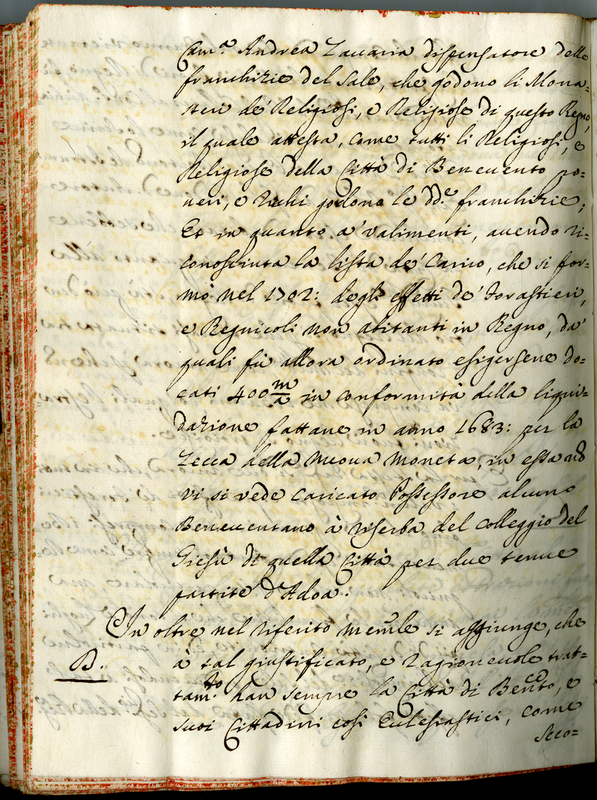 Cam.ª Andrea Zaccaria dispensatore delle
franchizie del Sale, che godono li Mona=
steri de' Religiosi, e Religiose di questo Regno,
il quale attesta, come tutti li Religiosi, e
Religiose della Città di Benevento po=
veri, e ricchi godono le dd.e franchizie;
Et in quanto a' valimenti, avendo ri=
conosciuta la lista de' Carico, che si for=
mò nel 1702: degli effetti de' forastieri,
e Regnicoli non abitanti in Regno, da'
quali fù allora ordinato esigersene do=
cati 400 m/a in conformità della liqui=
dazione fattane in anno 1683: per la
Zecca della nuova moneta, in essa no
vi si vede caricato Possessore alcuno
Beneventano à riserba del Colleggio del
Giesù di quella Città per due tenue
partite d'Adoa.
In oltre nel riferito mem.le si aggiunge, che
B.
à tal giustificato, e ragionevole trat=
tam.to han sempre la Città di Ben.to, e
suoi Cittadini così Eclesiastici, come
Seco=